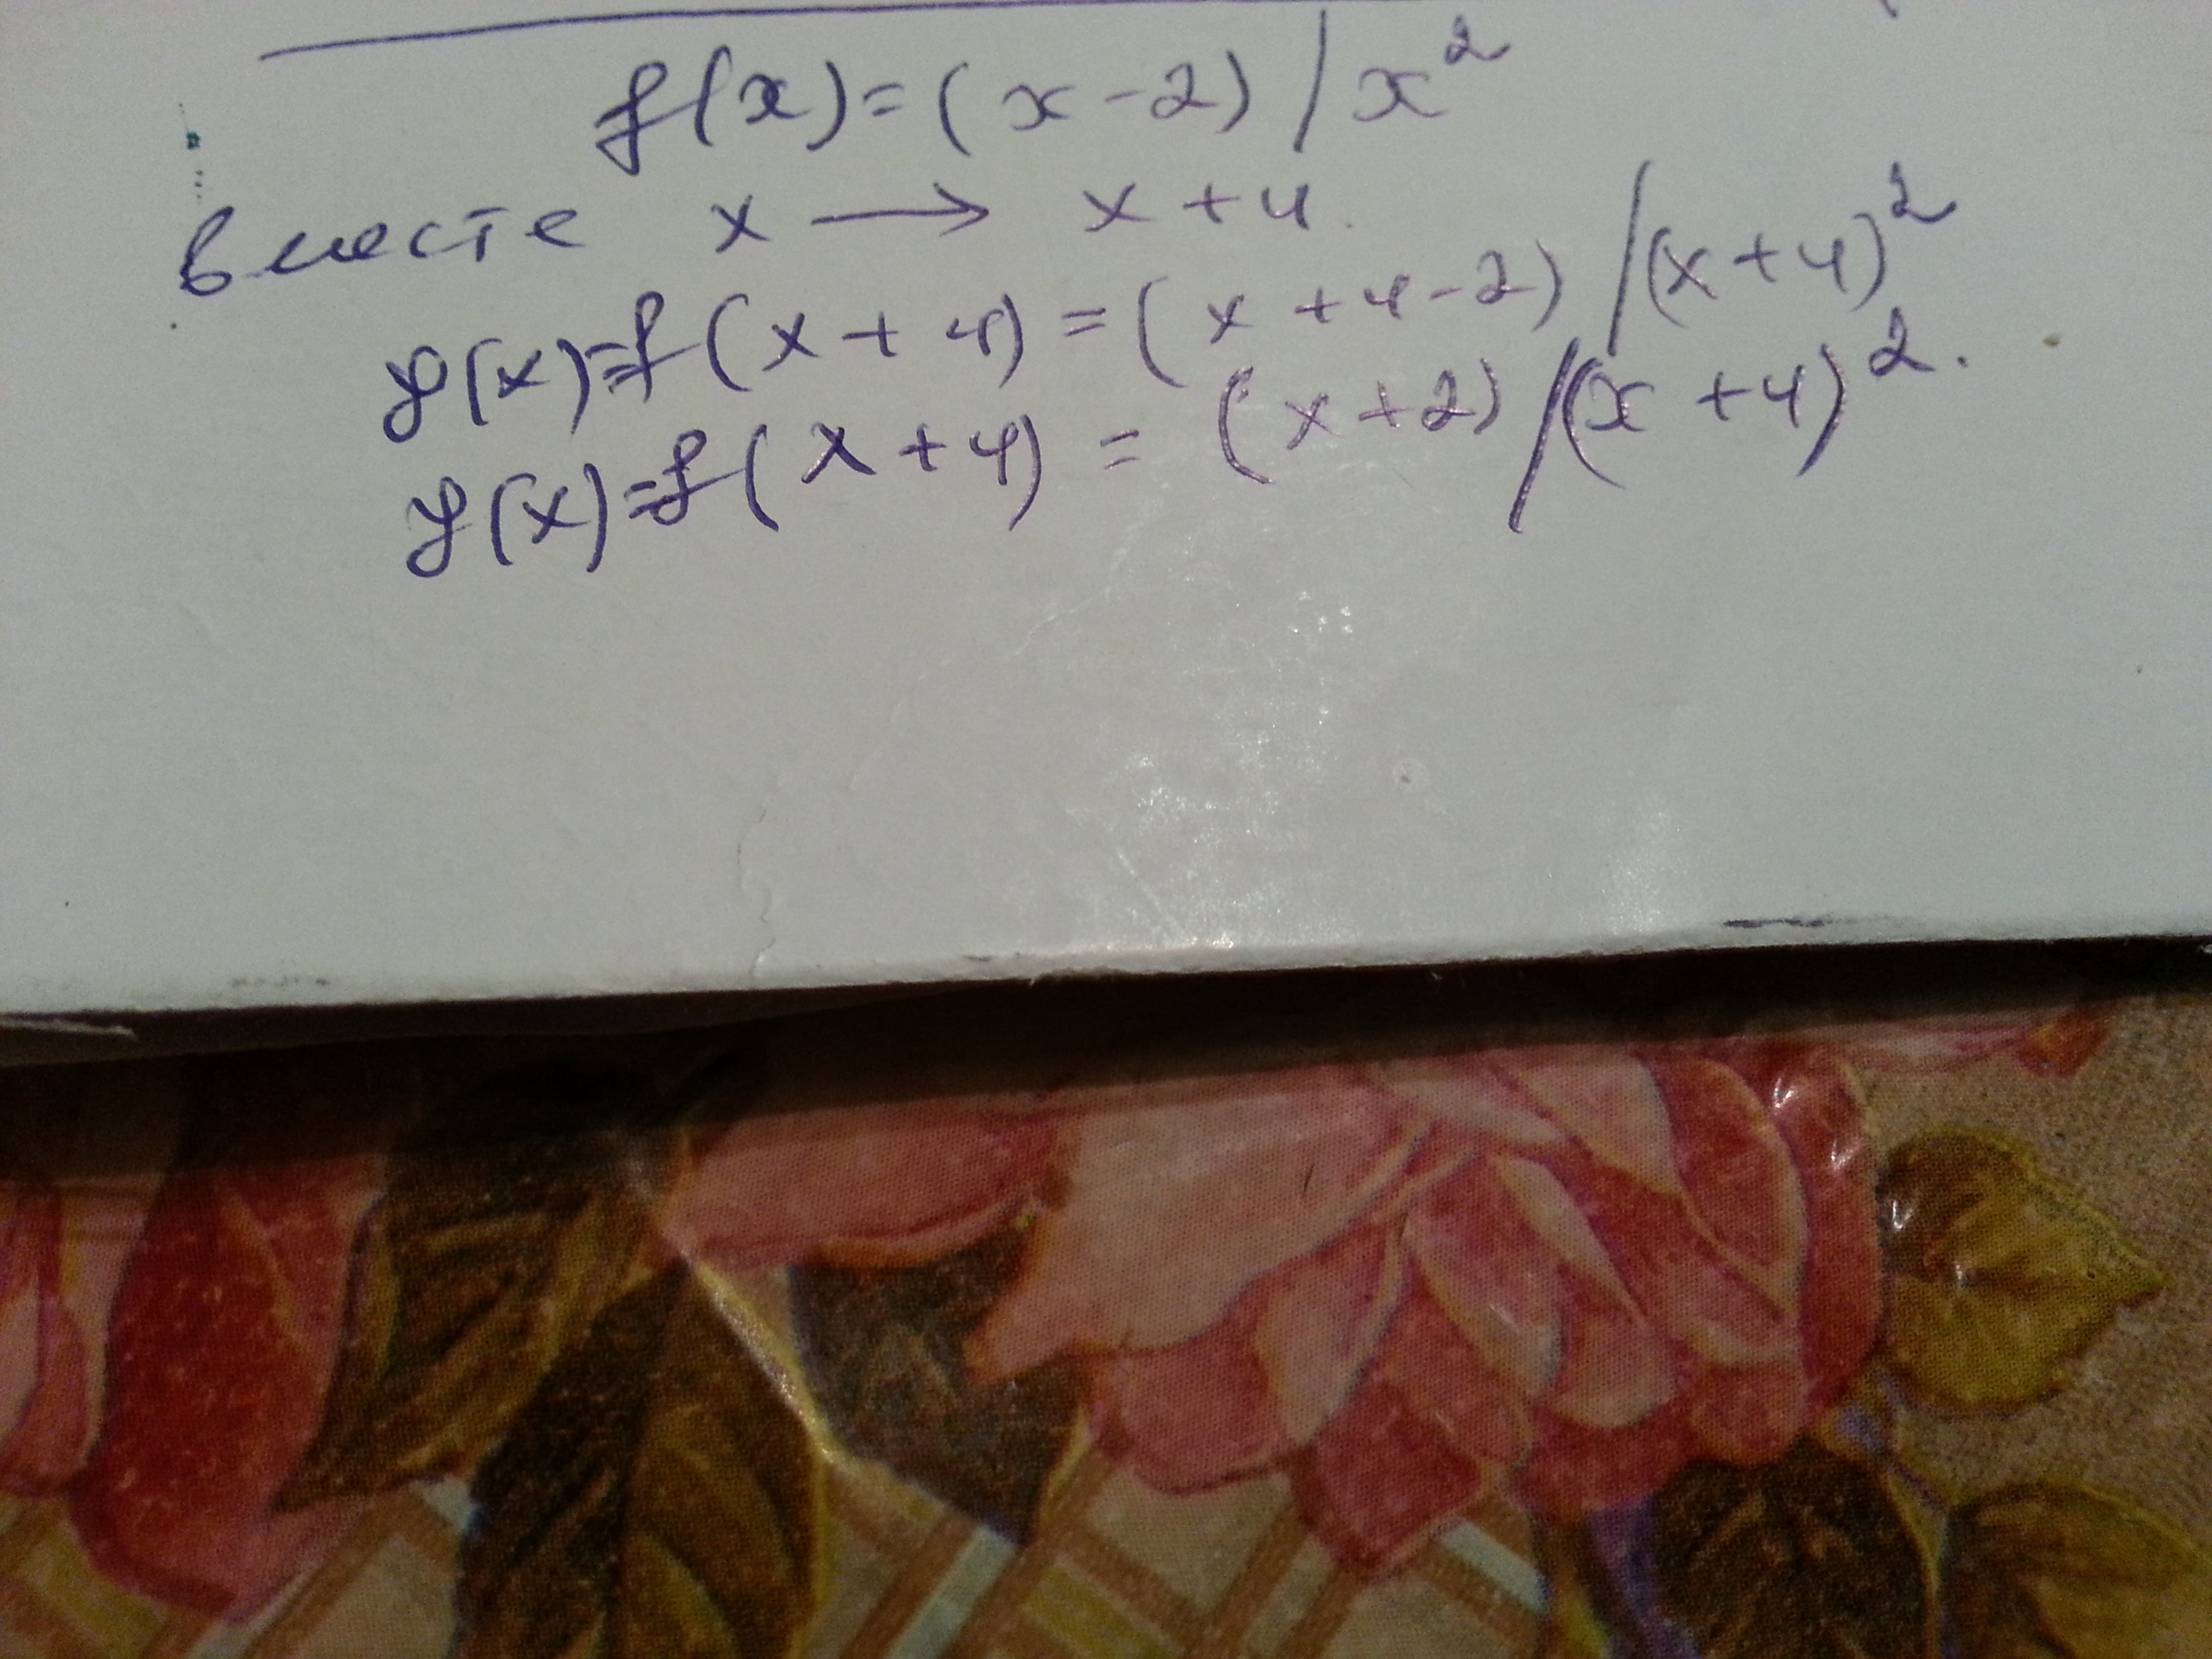 f(x)=(x-2)/x²
вместе x → x+4.
y(x)=f(x+4)=(x+4-2)/(x+4)²
y(x)=f(x+4)=(x+2)/(x+4)².